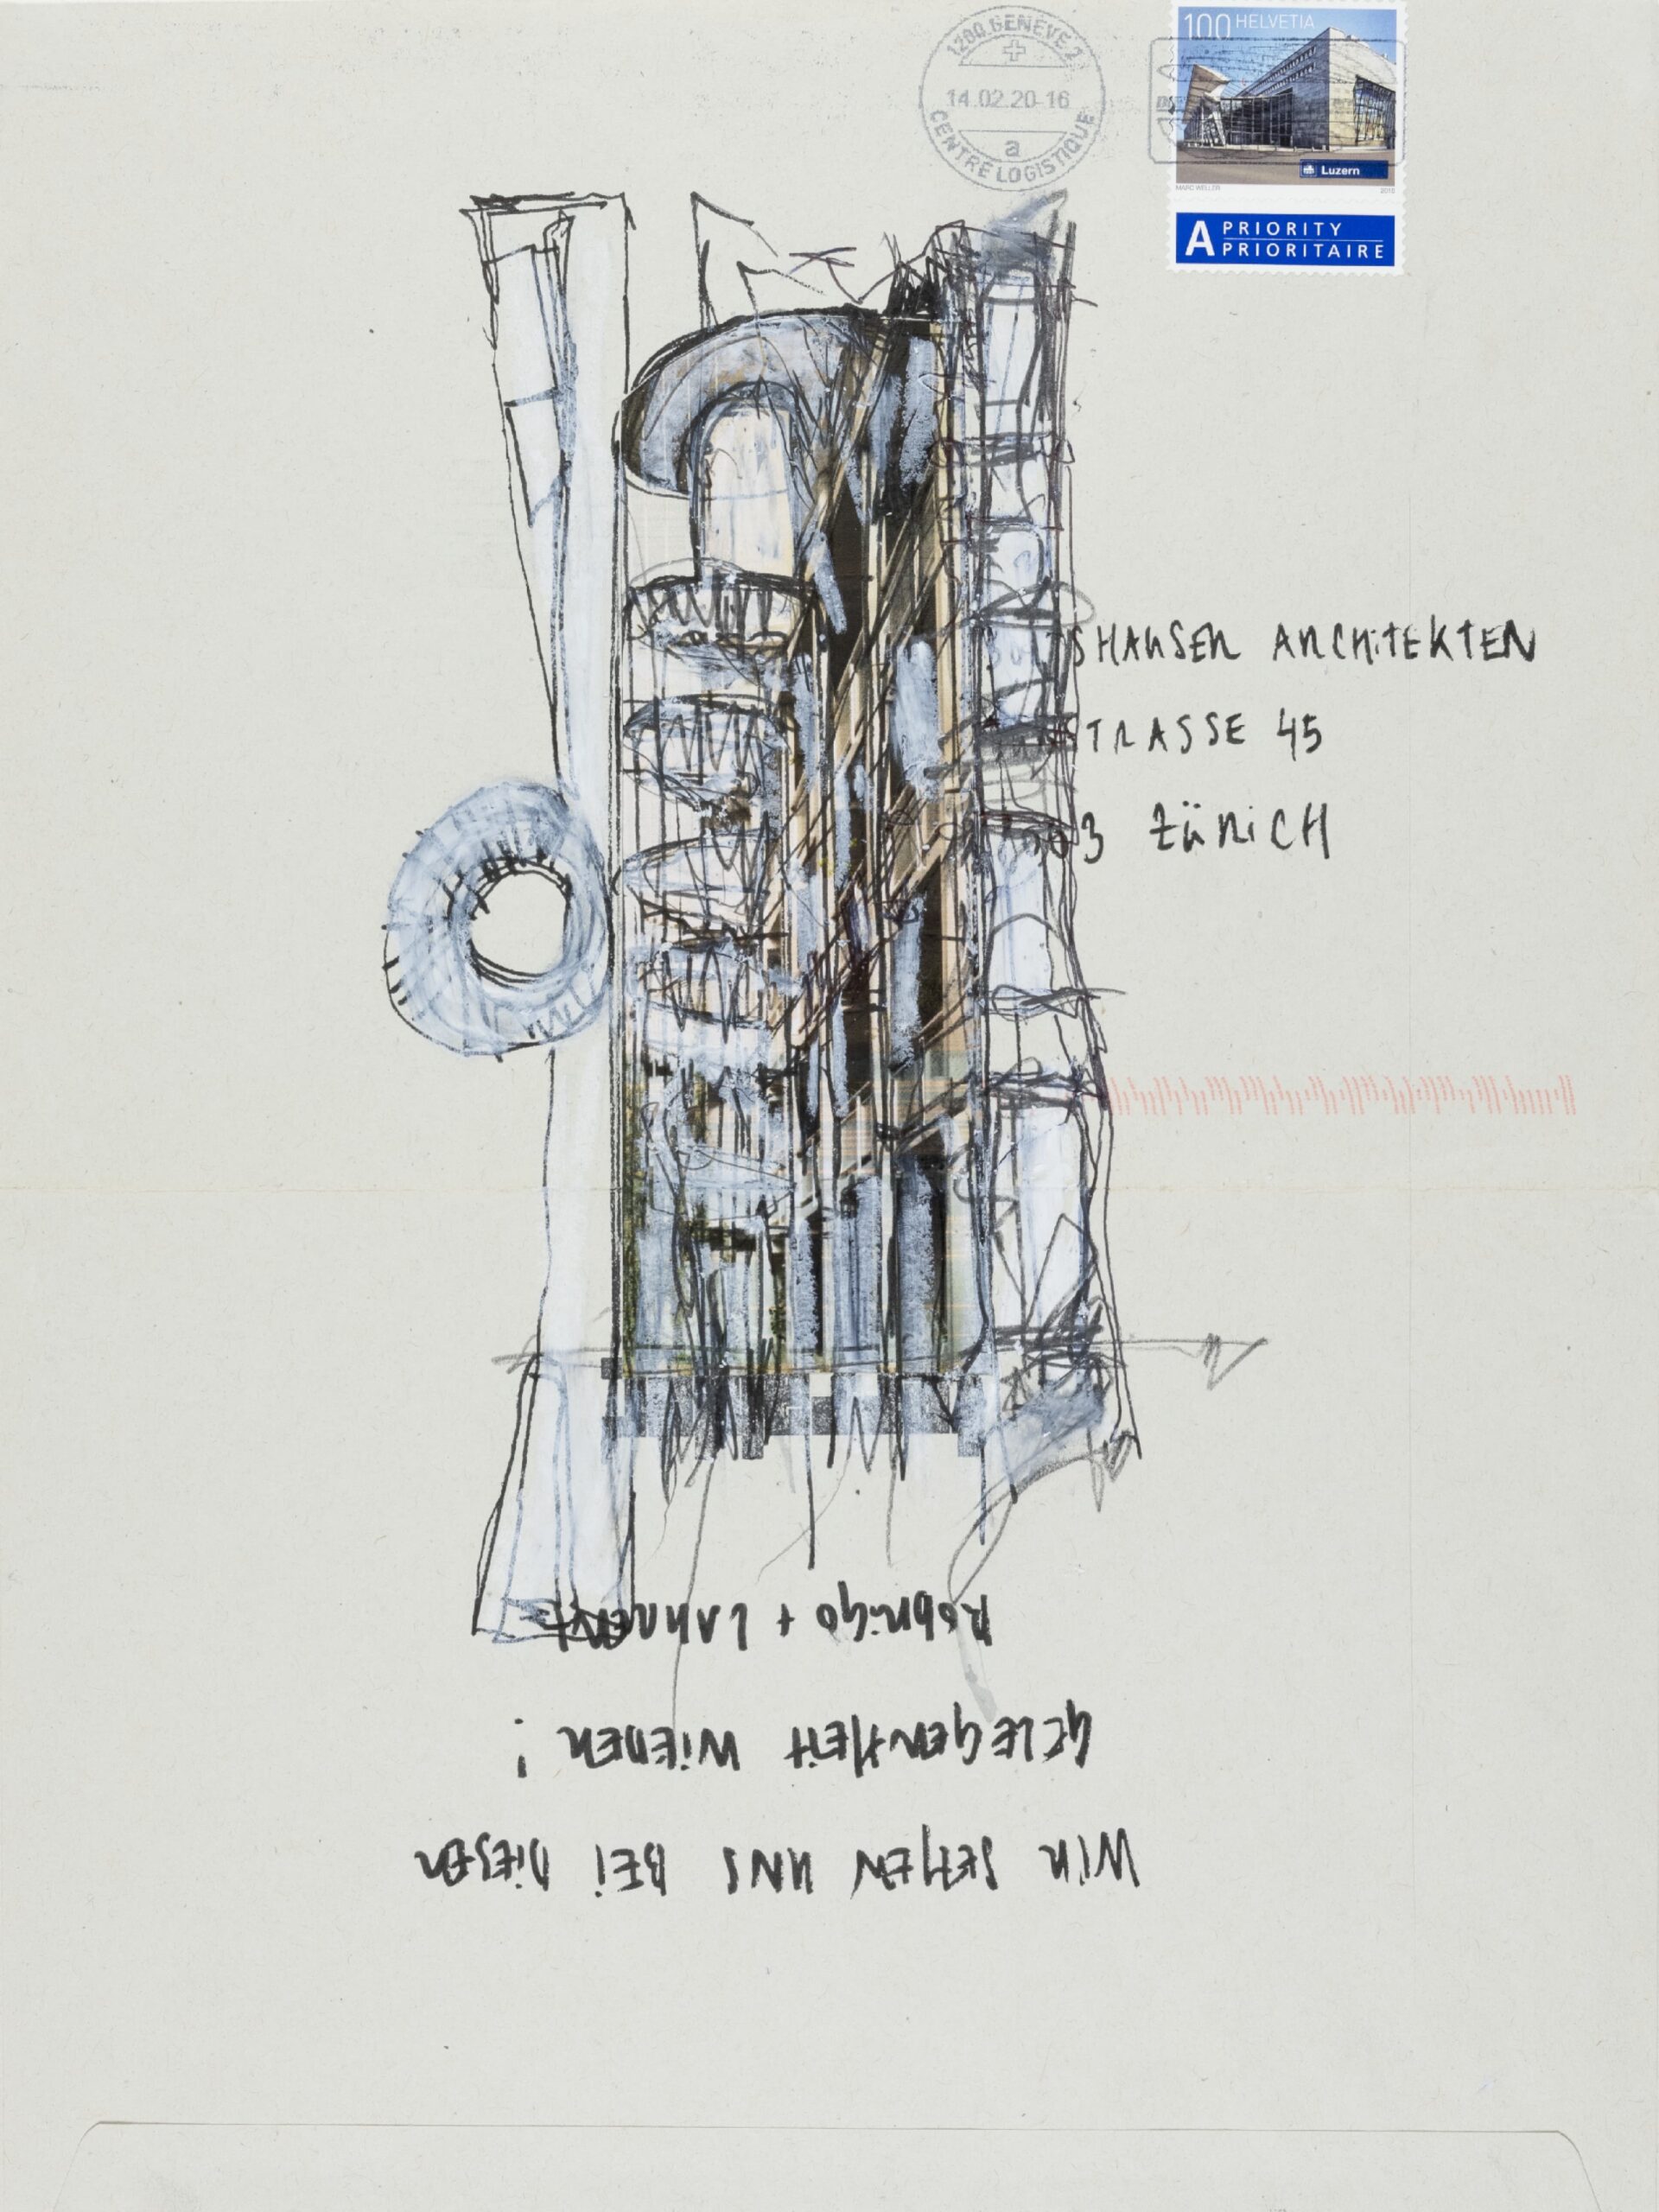 1200 GENEVE 2
14.02.20-16
a
CENTRE LOGISTIQUE
100 HELVETIA
Luzern
MARC WELLER 2010
A PRIORITY
PRIORITAIRE
SHAUSER ARCHITEKTEN
STRASSE 45
3 ZÜRICH
WIR SEHEN UNS BEI DIESER
GELEGENHEIT WIEDER !
RODRIGO + LAURENT